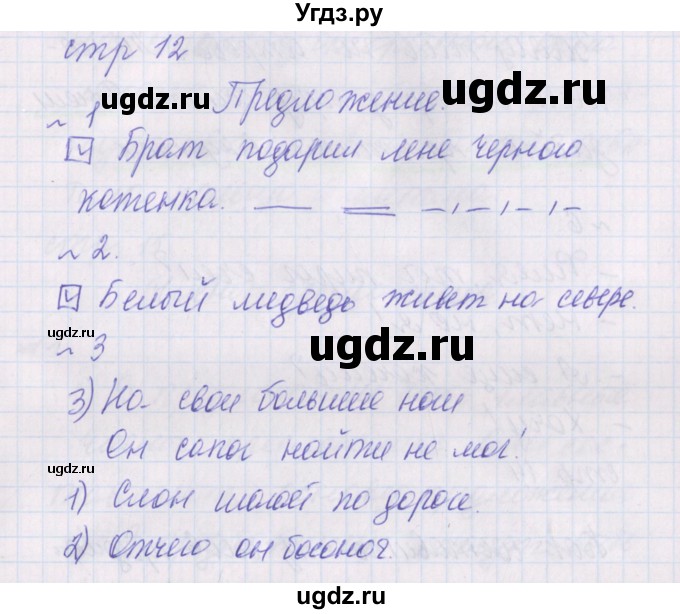 Угдз.ру
стр 12
ugdz.ru
ugdz.ru
~ 1 Предложение.
ugdz.ru
ч Брат подарил мне черного
котенка.
~ 2.
ч Белый медведь живет на севере.
ugdz.ru
ugdz.ru
~ 3
3) На свои большие ноги
Он сапог найти не мог!
ugdz.ru
1) Слон шагает по дороге.
2) Отчего он босоног.
ugdz.ru
ugdz.ru
Угдз.ру